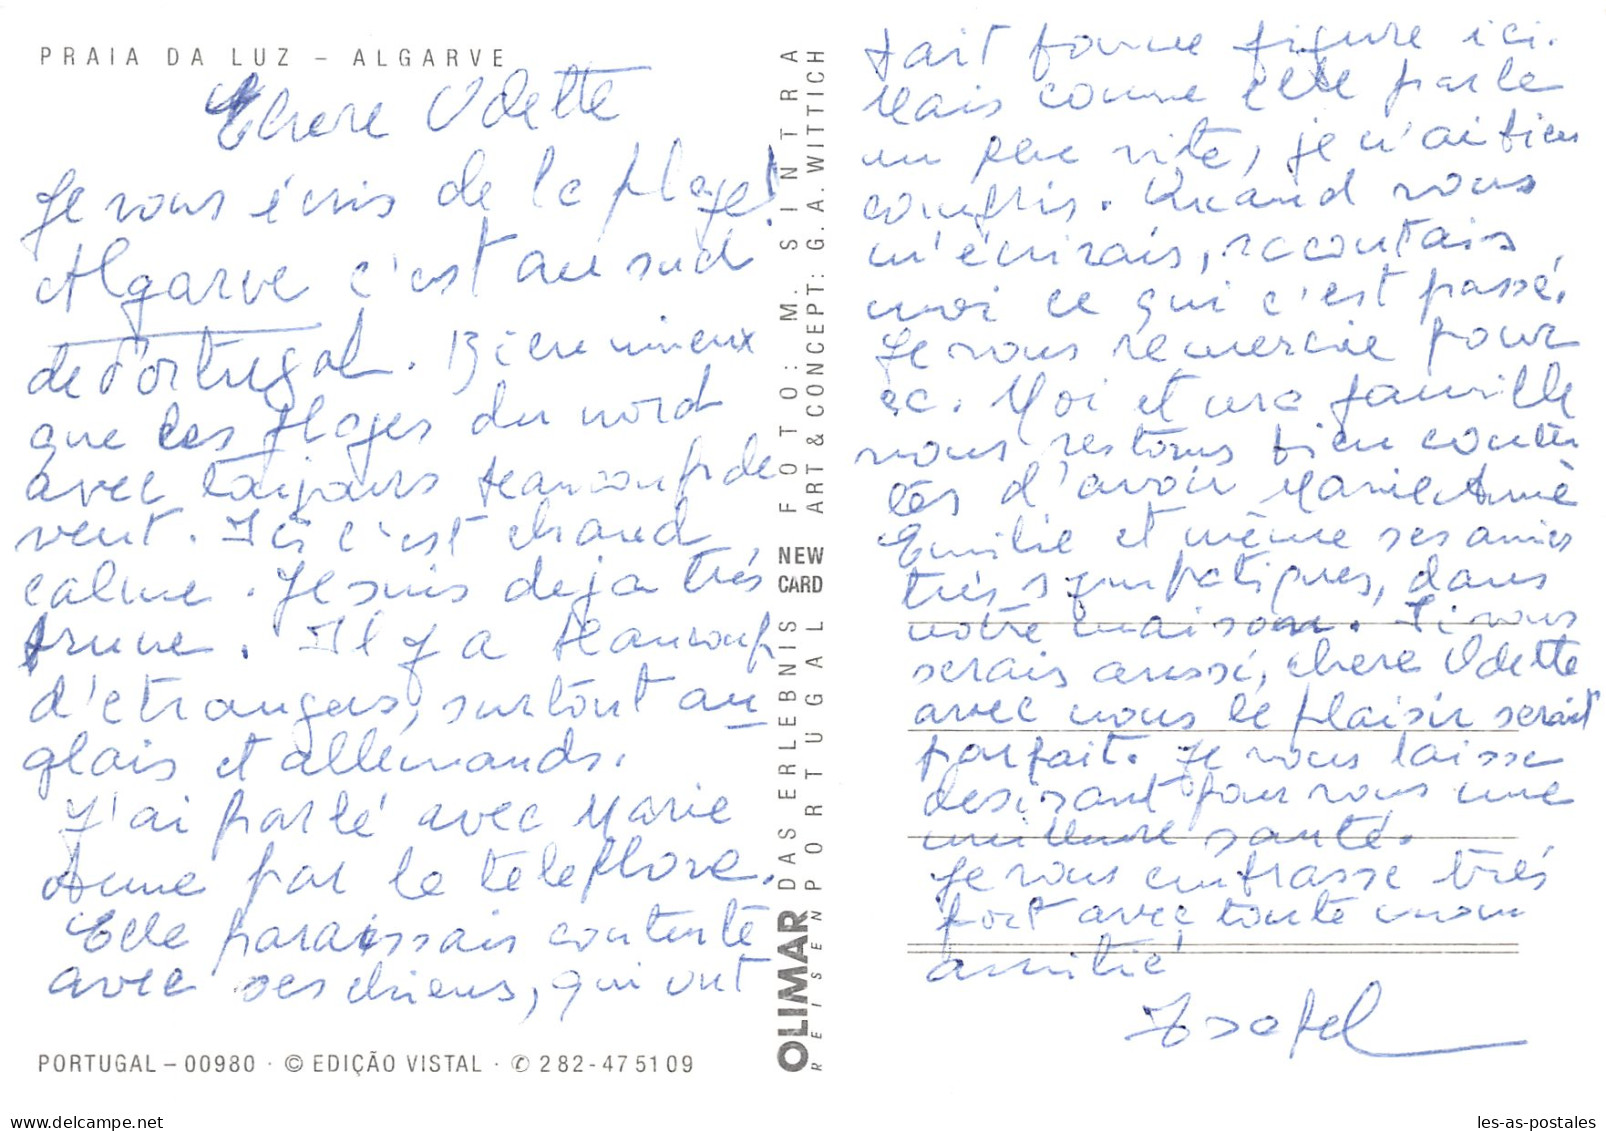 PRAIA DA LUZ – ALGARVE
Chere Odette
Je vous écris de la plage!
Algarve c'est au sud
de Portugal. Bien mieux
que les plages du nord
avec toujours beaucoup de
vent. Ici c'est chaud
calme. Je suis deja très
brune. Il y a beaucoup
d'etrangers, surtout an
glais et allemands.
J'ai parlé avec Marie
Anne par le telephone.
Elle paraissais contente
avec ses chiens, qui ont
PORTUGAL – 00980 · © EDIÇÃO VISTAL · ✆ 282-475109
OLIMAR
REISEN
DAS ERLEBNIS
PORTUGAL
NEW
CARD
FOTO: M. SINTRA
ART & CONCEPT: G. A. WITTICH
fait bonne figure ici.
Mais comme elle parle
un peu vite, je n'ai bien
compris. Quand vous
m'écrirais, racontais
moi ce qui c'est passé.
Je vous remercie pour
ec. Moi et ma famille
nous restons bien conten
tes d'avoir Marie Anne
Emilie et même ses amies
très sympatiques, dans
nôtre maison. Si vous
serais aussi, chere Odette
avec nous le plaisir serait
parfait. Je vous laisse
desirant pour vous une
meilleure santé.
Je vous embrasse très
fort avec toute mon
amitié
Isabel
les-as-postales